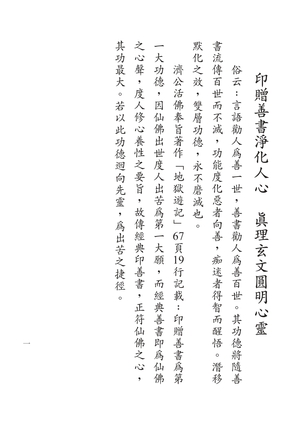 印贈善書淨化人心　真理玄文圓明心靈
俗云：言語勸人為善一世，善書勸人為善百世。其功德將隨善
書流傳百世而不減，功能度化惡者向善，痴迷者得智而醒悟。潛移
默化之效，雙層功德，永不磨滅也。
濟公活佛奉旨著作「地獄遊記」67頁19行記載：印贈善書為第
一大功德，因仙佛出世度人出苦為第一大願，而經典善書即為仙佛
之心聲，度人修心養性之要旨，故傳經典印善書，正符仙佛之心，
其功最大。若以此功德迴向先靈，為出苦之捷徑。
一